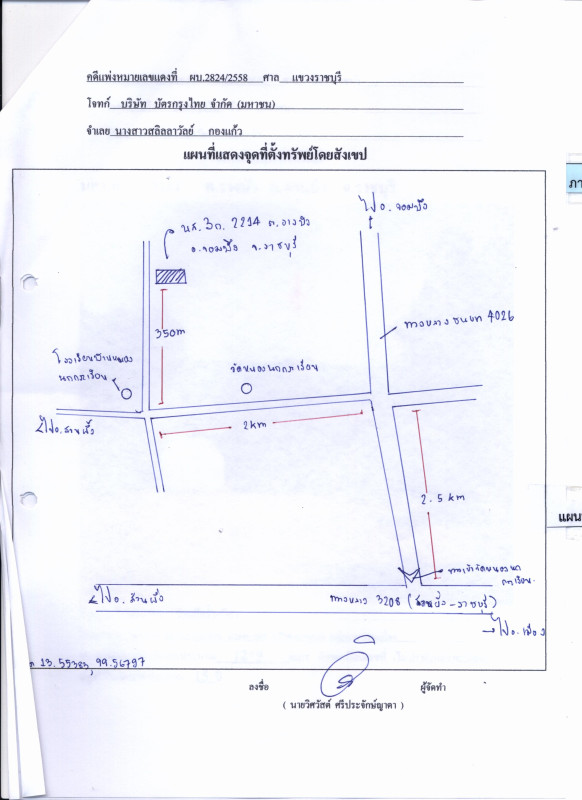 คดีแพ่งหมายเลขแดงที่ ผบ.2824/2558 ศาล แขวงราชบุรี
โจทก์ บริษัท บัตรกรุงไทย จำกัด (มหาชน)
จำเลย นางสาวสลิลลาวัลย์ กองแก้ว
แผนที่แสดงจุดที่ตั้งทรัพย์โดยสังเขป
ไป อ. จอมบึง
นส. 3ก. 2214 ต.
อ.จอมบึง จ.ราชบุรี
ทางหลวงชนบท 4026
350m
โรงเรียนบ้านหนอง
นกกระเรียน
วัดหนองนกกระเรียน
ไป อ.สวนผึ้ง
2km
2.5 km
ทางเข้าวัดหนองนก
กระเรียน
ไป อ. สวนผึ้ง
ทางหลวง 3208 (
-ราชบุรี)
ไป อ. เมือง
13.55383, 99.56797
ลงชื่อ
ผู้จัดทำ
( นายวิศวัสต์ ศรีประจักษ์ญาดา )
ภา
แผน